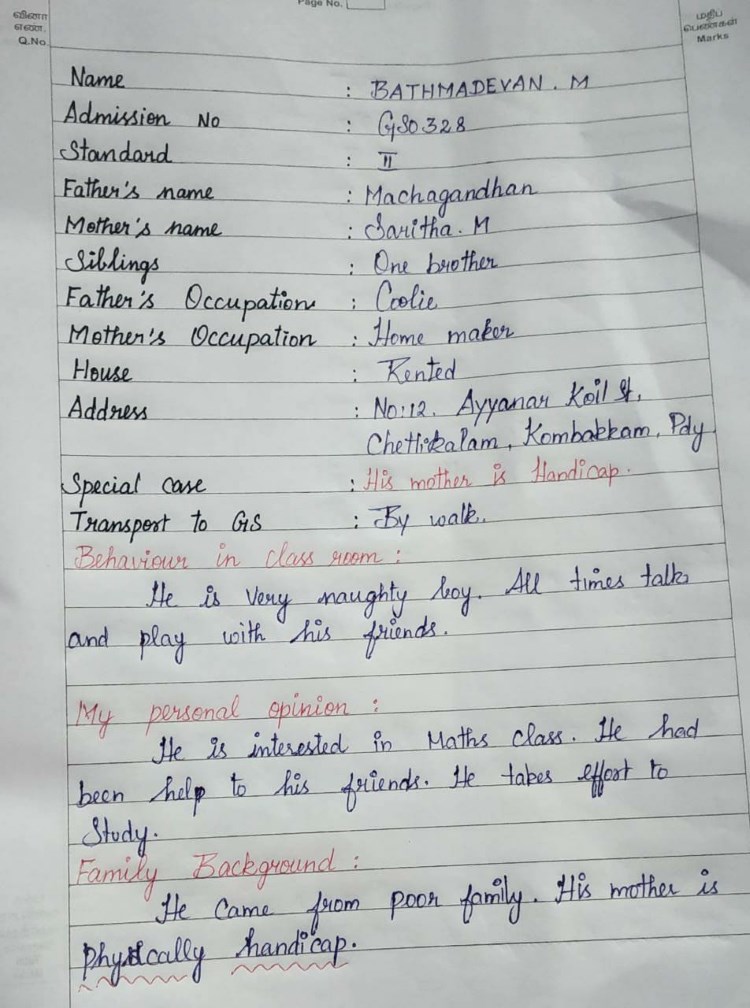 Page No.
வினா
எண்.
Q.No.
மதிப்
பெண்கள்
Marks
Name : BATHMADEVAN. M
Admission No : GS0328
Standard : II
Father's name : Machagandhan
Mother's name : Saritha. M
Siblings : One brother
Father's Occupation : Coolie
Mother's Occupation : Home maker
House : Rented
Address : No:12. Ayyanar Koil St,
Chettikalam, Kombakkam, Pdy
Special case : His mother is Handicap.
Transport to GS : By walk.
Behaviour in class room :
He is very naughty boy. All times talk
and play with his friends.
My personal opinion :
He is interested in Maths class. He had
been help to his friends. He takes effort to
Study.
Family Background :
He came from poor family. His mother is
physically handicap.